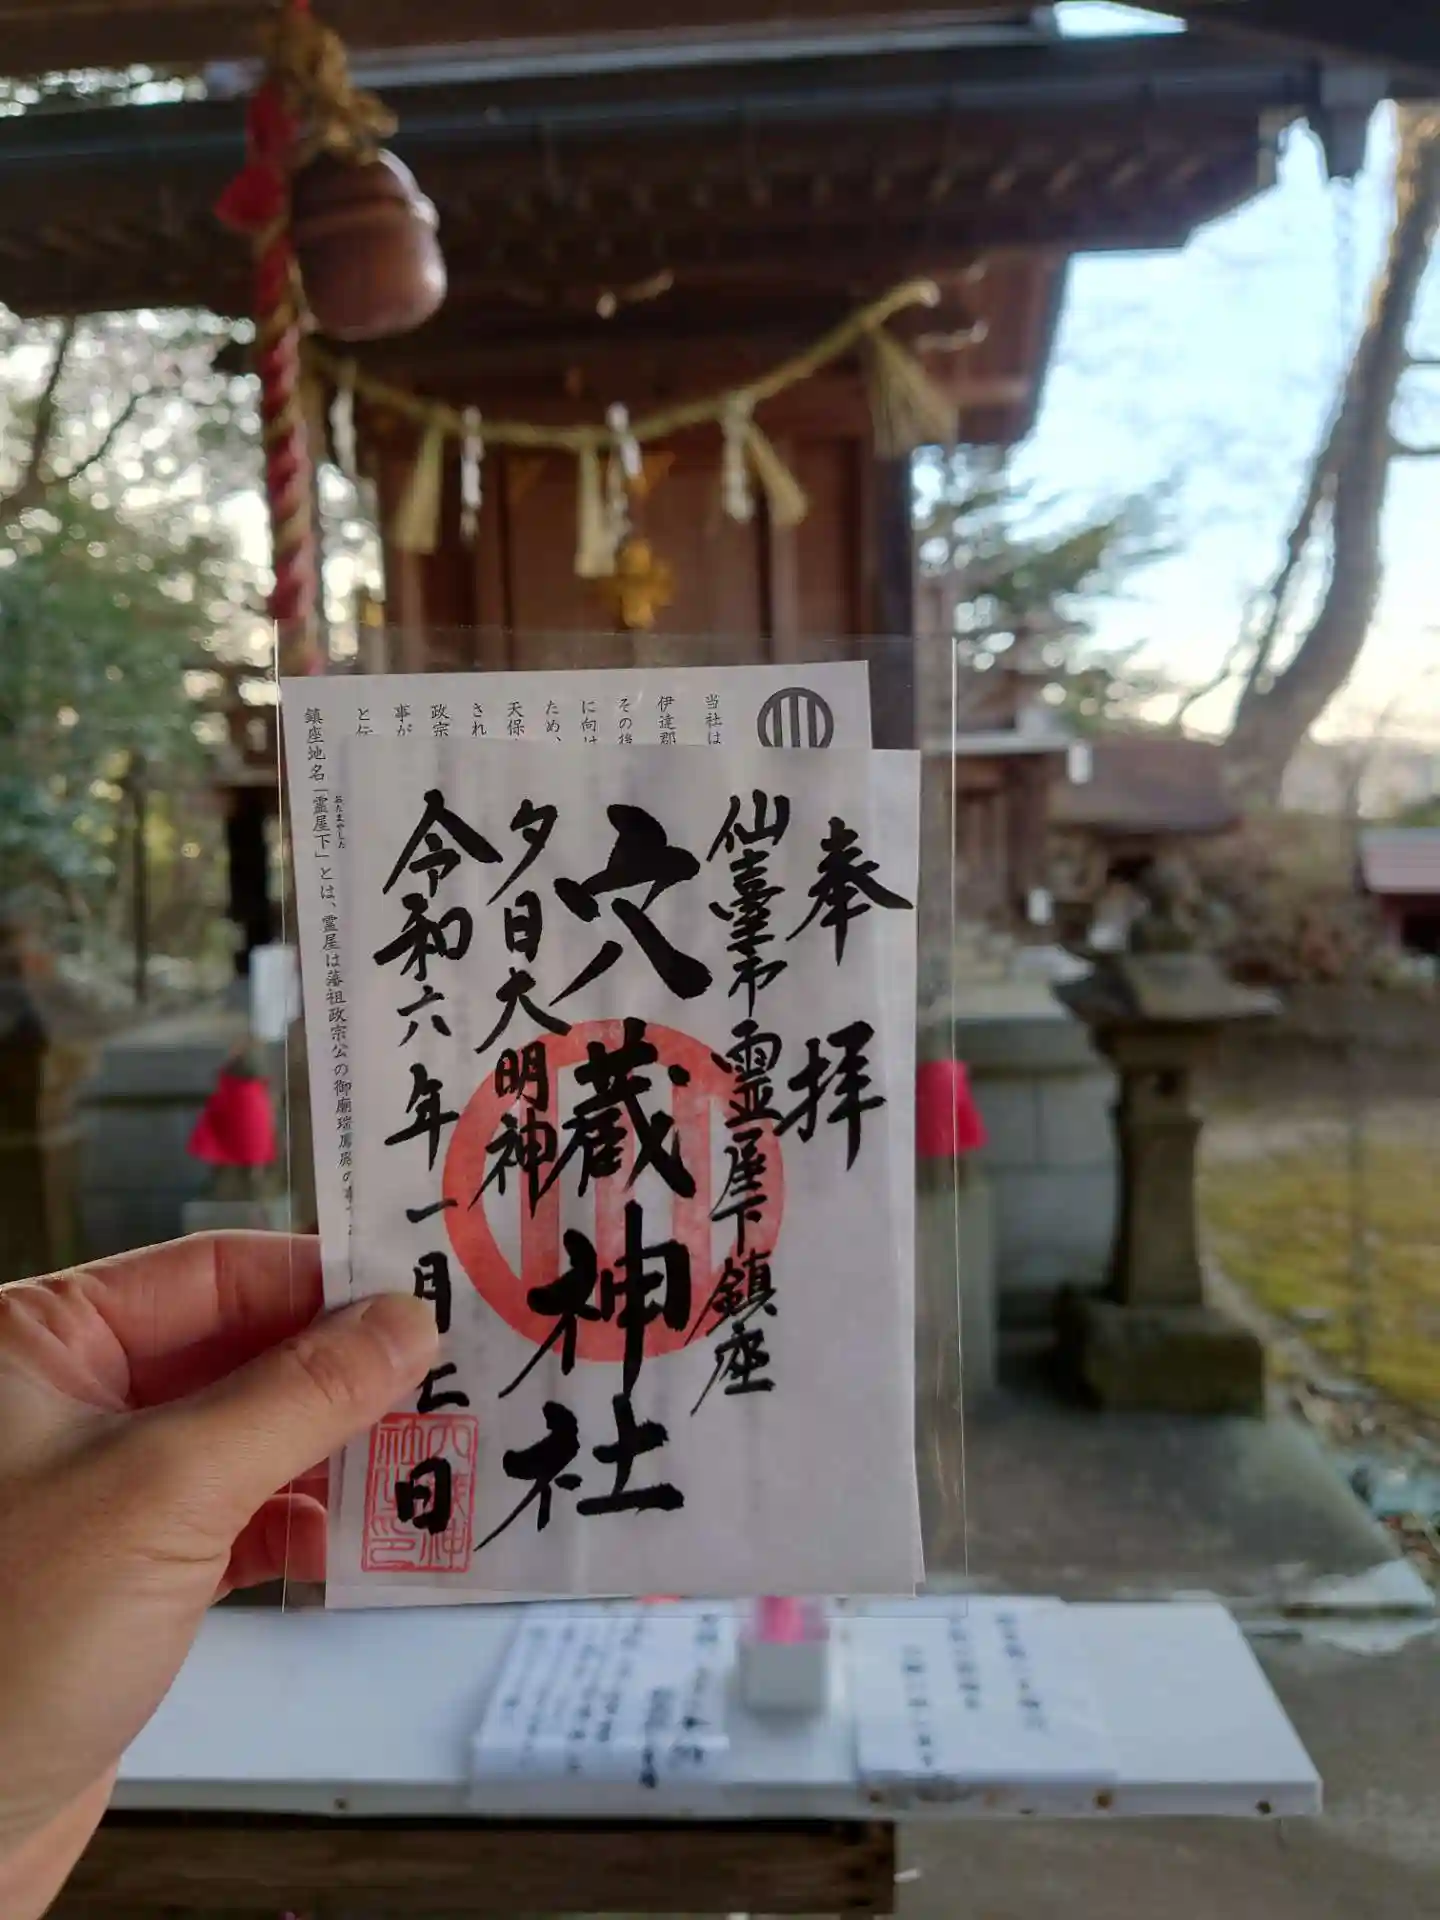 奉拝
仙臺市霊屋下鎮座
穴蔵神社
夕日大明神
令和六年一月七日
当社は
伊達郡
その後
に向け
ため、
天保
され
政宗
事が
と伝
鎮座地名「霊屋下」とは、霊屋は藩祖政宗公の御廟瑞鳳殿の事
おたまやした
穴蔵神
社之印